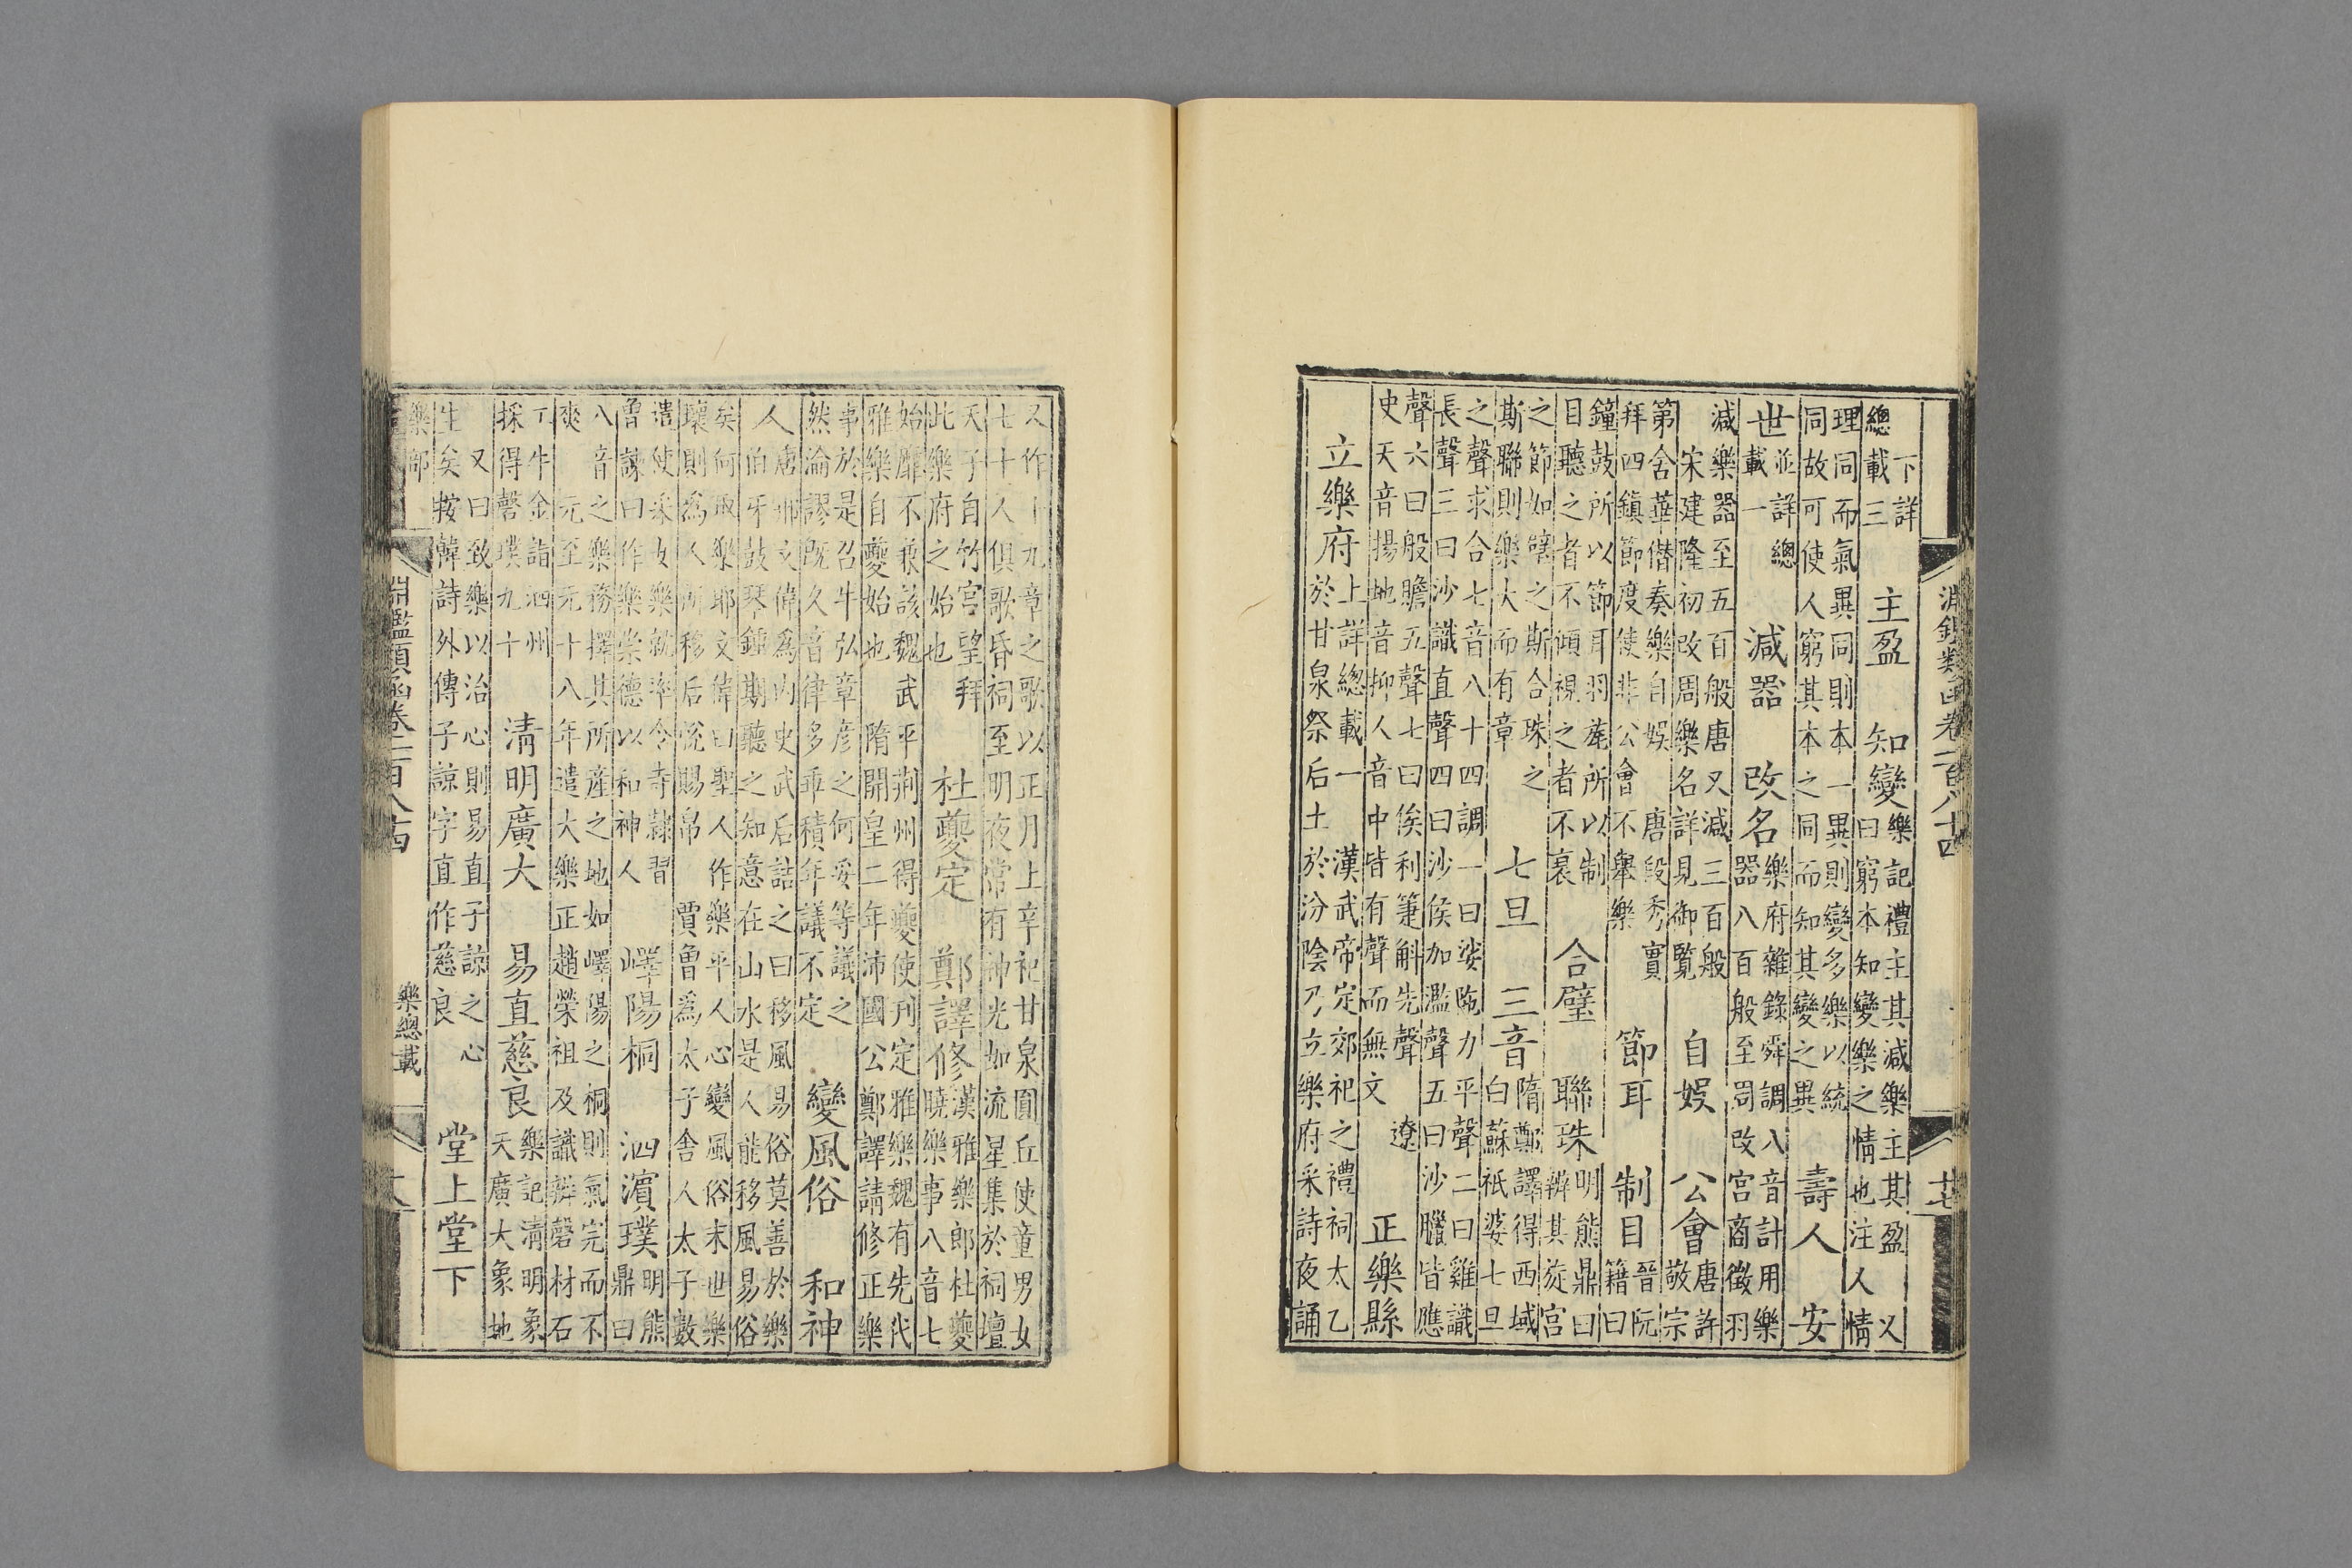 淵鑑類函卷一百八十四
十七
下詳
總載三
主盈 知變
樂記禮主其減樂主其盈 又
曰窮本知變樂之情也注人情
理同而氣異同則本一異則變多樂以統
同故可使人窮其本之同而知其變之異
壽人 安
世
並詳總
載一
減器 改名
樂府雜錄舜調八音計用樂
器八百般至周改宮商徵羽
減樂器至五百般唐又減三百般
宋建隆初改周樂名詳見御覽
自娱 公會
唐許
敬宗
第舍華僣奏樂自娱 唐段秀實
拜四鎮節度使非公會不舉樂
節耳 制目
晉阮
籍曰
鐘鼓所以節耳羽旄所以制
目聽之者不傾視之者不衰
合璧 聯珠
明熊鼎曰
辨其㳬宮
之節如璧之斯合珠之
斯聯則樂大而有章
七旦 三音
隋鄭譯得西域
白蘇祇婆七旦
之聲求合七音八十四調一曰娑陁力平聲二曰雞識
長聲三曰沙識直聲四曰沙侯加濫聲五曰沙臘皆應
聲六曰般贍五聲七曰俟利箑斛先聲 遼
史天音揚地音抑人音中皆有聲而無文
正樂縣
立樂府
上詳總載一 漢武帝定郊祀之禮祠太乙
於甘泉祭后土於汾陰乃立樂府采詩夜誦
又作十九章之歌以正月上辛祀甘泉圜丘使童男女
七十人俱歌昏祠至明夜常有神光如流星集於祠壇
天子自竹宮望拜
此樂府之始也
杜夔定 鄭譯修
漢雅樂郎杜夔
曉樂事八音七
始靡不兼該魏武平荆州得夔使刊定雅樂魏有先代
雅樂自夔始也 隋開皇二年沛國公鄭譯請修正樂
事於是召牛弘辛彦之何妥等議之
然淪謬既久音律多乖積年議不定
變風俗 和神
人
唐鄭文偉為内史武后詰之曰移風易俗莫善於樂
伯牙鼓琴鍾期聽之知意在山水是人能移風易俗
矣何取樂耶文偉曰聖人作樂平人心變風俗末世樂
壞則為人所移后悅賜帛 賈魯為太子舍人太子數
遣使采女樂就率令寺隸習
魯諫曰作樂崇德以和神人
嶧陽桐 泗濱璞
明熊
鼎曰
八音之樂務擇其所產之地如嶧陽之桐則氣完而不
爽 元至元十八年遣大樂正趙榮祖及識辨磬材石
工牛全詣泗州
採得磬璞九十
清明廣大 易直慈良
樂記清明象
天廣大象地
又曰致樂以治心則易直子諒之心
生矣按韓詩外傳子諒字直作慈良
堂上堂下
淵鑑類函卷一百八十四
樂總載